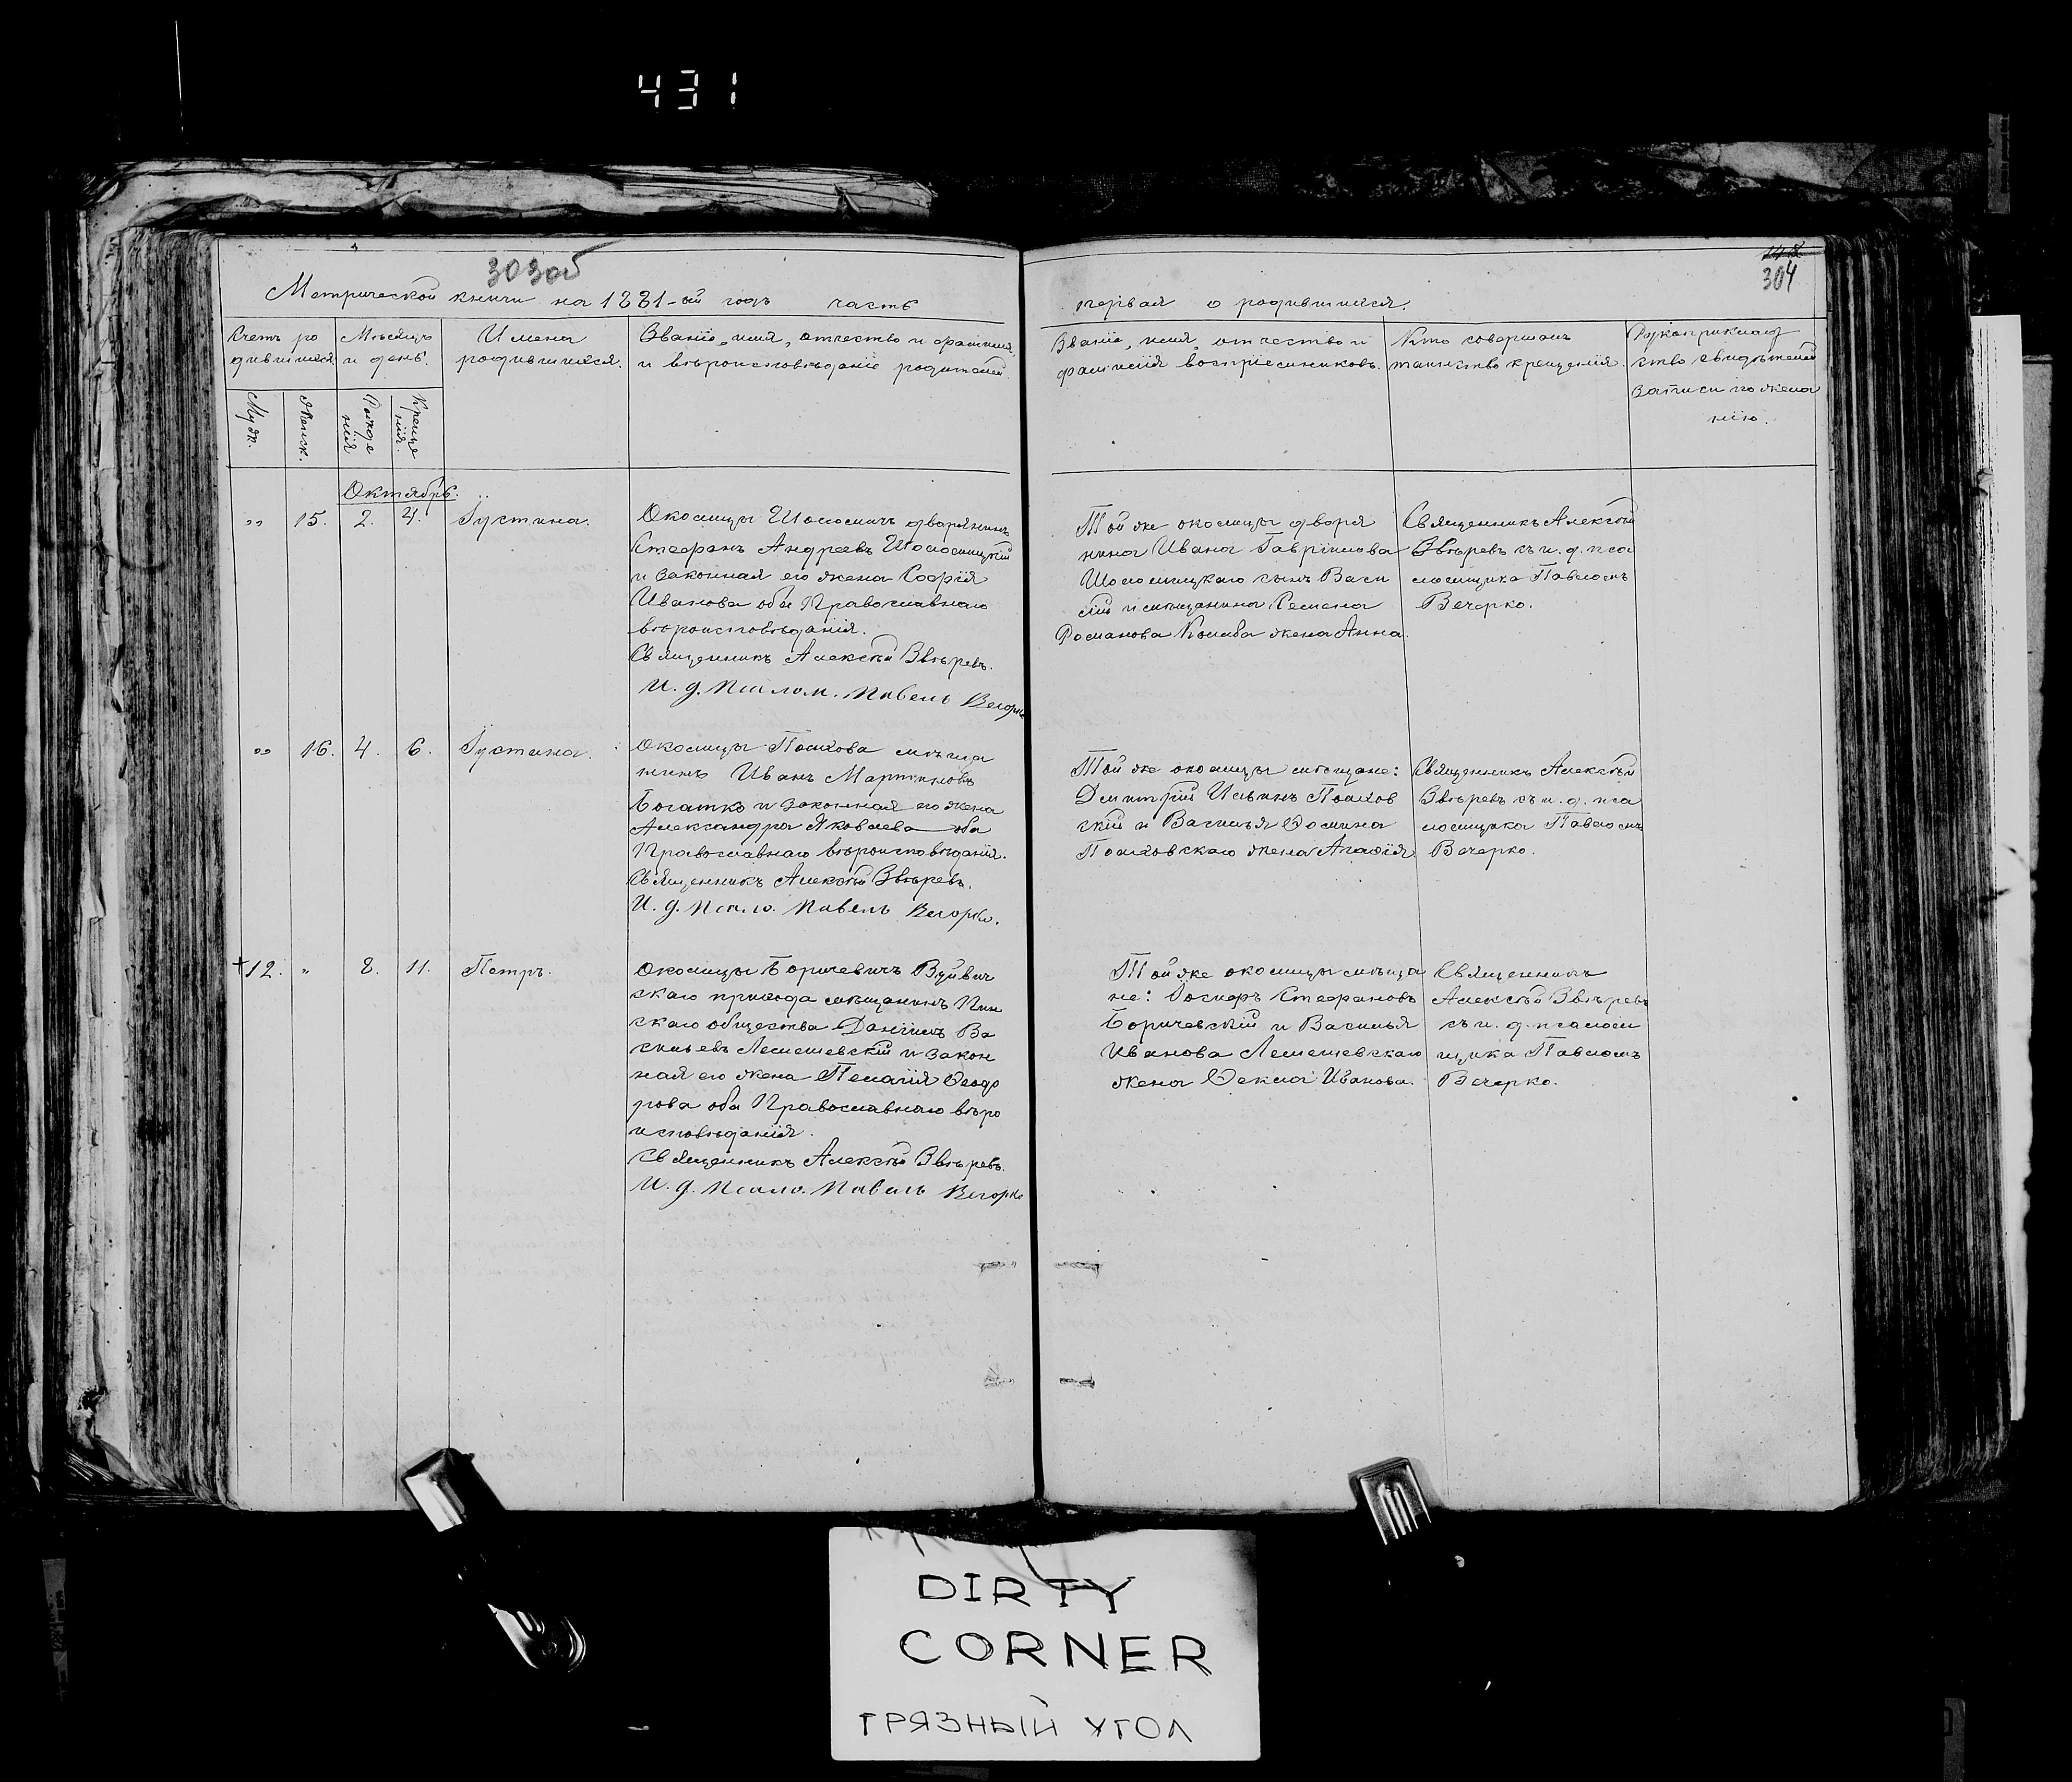 431
303об
148
304
Метрической книги на 1881-ый годъ часть
первая о родившихся.
Счетъ ро
дившихся
Муж.
Женск.
Мѣсяцъ
и день.
Рожде
нія
Креще
нія.
Имена
родившихся.
Званіе, имя, отчество и фамилія
и вѣроисповѣданіе родителей.
Званіе, имя, отчество и
фамилія воспріемниковъ.
Кто совершалъ
таинство крещенія.
Рукоприклад
ство свидѣтелей
записи по жела
нію.
Октябрь.
„ 15. 2. 4. Іустина.
Околицы Шоломичъ дворянинъ
Стефанъ Андреевъ Шоломицкій
и законная его жена Софія
Иванова оба Православнаго
вѣроисповѣданія.
Священникъ Алексѣй Звѣревъ.
И. д. Псалом. Павелъ Вечорко
Той же околицы дворя
нина Ивана Гавріилова
Шоломицкаго сынъ Васи
лій и мѣщанина Семена
Романова Колба жена Анна.
Священникъ Алексѣй
Звѣревъ съ и. д. пса
ломщика Павломъ
Вечерко.
„ 16. 4. 6. Іустина.
Околицы Полхова мѣща
нинъ Иванъ Мартиновъ
Богатко и законная его жена
Александра Яковлева оба
Православнаго вѣроисповѣданія.
Священникъ Алексѣй Звѣревъ.
И. д. Псало. Павелъ Вечорко.
Той же околицы мѣщане:
Димитрій Ильинъ Полхов
скій и Василья Ѳомина
Полховскаго жена Агафія.
Священникъ Алексѣй
Звѣревъ съ и. д. пса
ломщика Павломъ
Вечерко.
+12. „ 8. 11. Петръ.
Околицы Боричевичъ Вуйвич
скаго прихода мѣщанинъ Пин
скаго общества Даніилъ Ва
сильевъ Лемешевскій и закон
ная его жена Пелагія Ѳеодо
рова оба Православнаго вѣро
исповѣданія.
Священникъ Алексѣй Звѣревъ.
И. д. Псало. Павелъ Вечорко
Той же околицы мѣща
не: Іосифъ Стефановъ
Боричевскій и Василья
Иванова Лемешевскаго
жена Ѳекла Иванова.
Священникъ
Алексѣй Звѣревъ
съ и. д. псалом
щика Павломъ
Вечерко.
DIRTY
CORNER
ГРЯЗНЫЙ УГОЛ